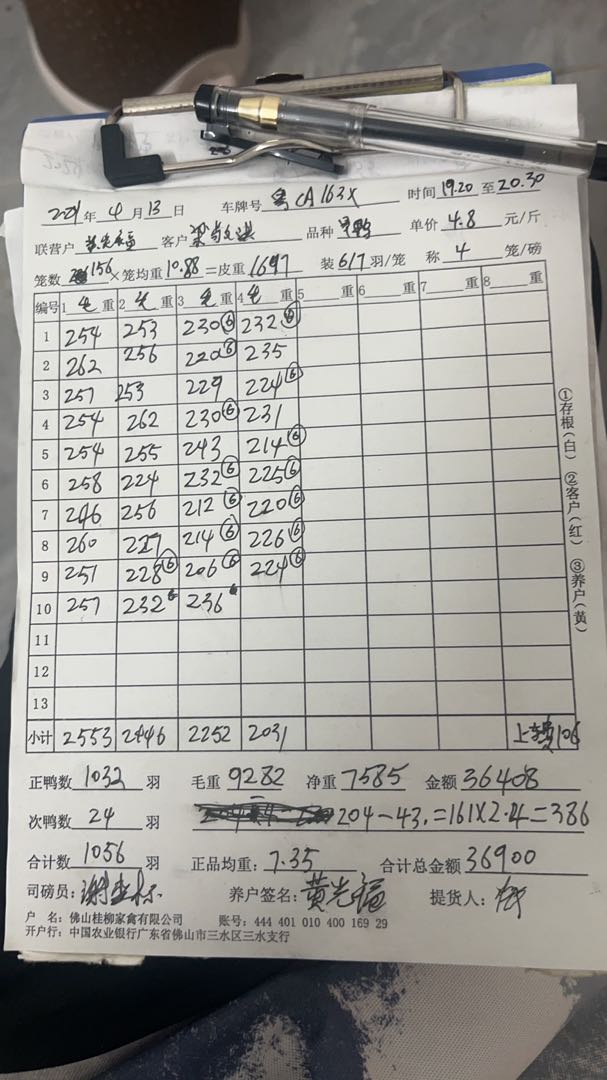 年 4 月 13 日 车牌号 粤CA163X 时间 19.20 至 20.30
联营户 客户 品种 单价 4.8 元/斤
笼数 156 ×笼均重 10.88 =皮重 1697 装 6/7 羽/笼 称 4 笼/磅
编号 1 毛 重 2 毛 重 3 毛 重 4 毛 重 5 重 6 重 7 重 8 重
1 254 253 230⑥ 232⑥
2 262 256 220⑥ 235
3 257 253 229 224⑥
4 254 262 230⑥ 231
5 254 255 243 214⑥
6 258 224 232⑥ 225⑥
7 246 256 212⑥ 220⑥
8 260 227 214⑥ 226⑥
9 251 228⑥ 206⑥ 224⑥
10 257 232⑥ 236
11
12
13
小计 2553 2446 2252 2031 上车费106
正鸭数 1032 羽 毛重 9282 净重 7585 金额 36408
次鸭数 24 羽 204-43.=161X2.4=386
合计数 1056 羽 正品均重: 7.35 合计总金额 36900
司磅员: 养户签名: 黄光福 提货人:
户 名: 佛山桂柳家禽有限公司 账号: 444 401 010 400 169 29
开户行: 中国农业银行广东省佛山市三水区三水支行
①存根(白) ②客户(红) ③养户(黄)